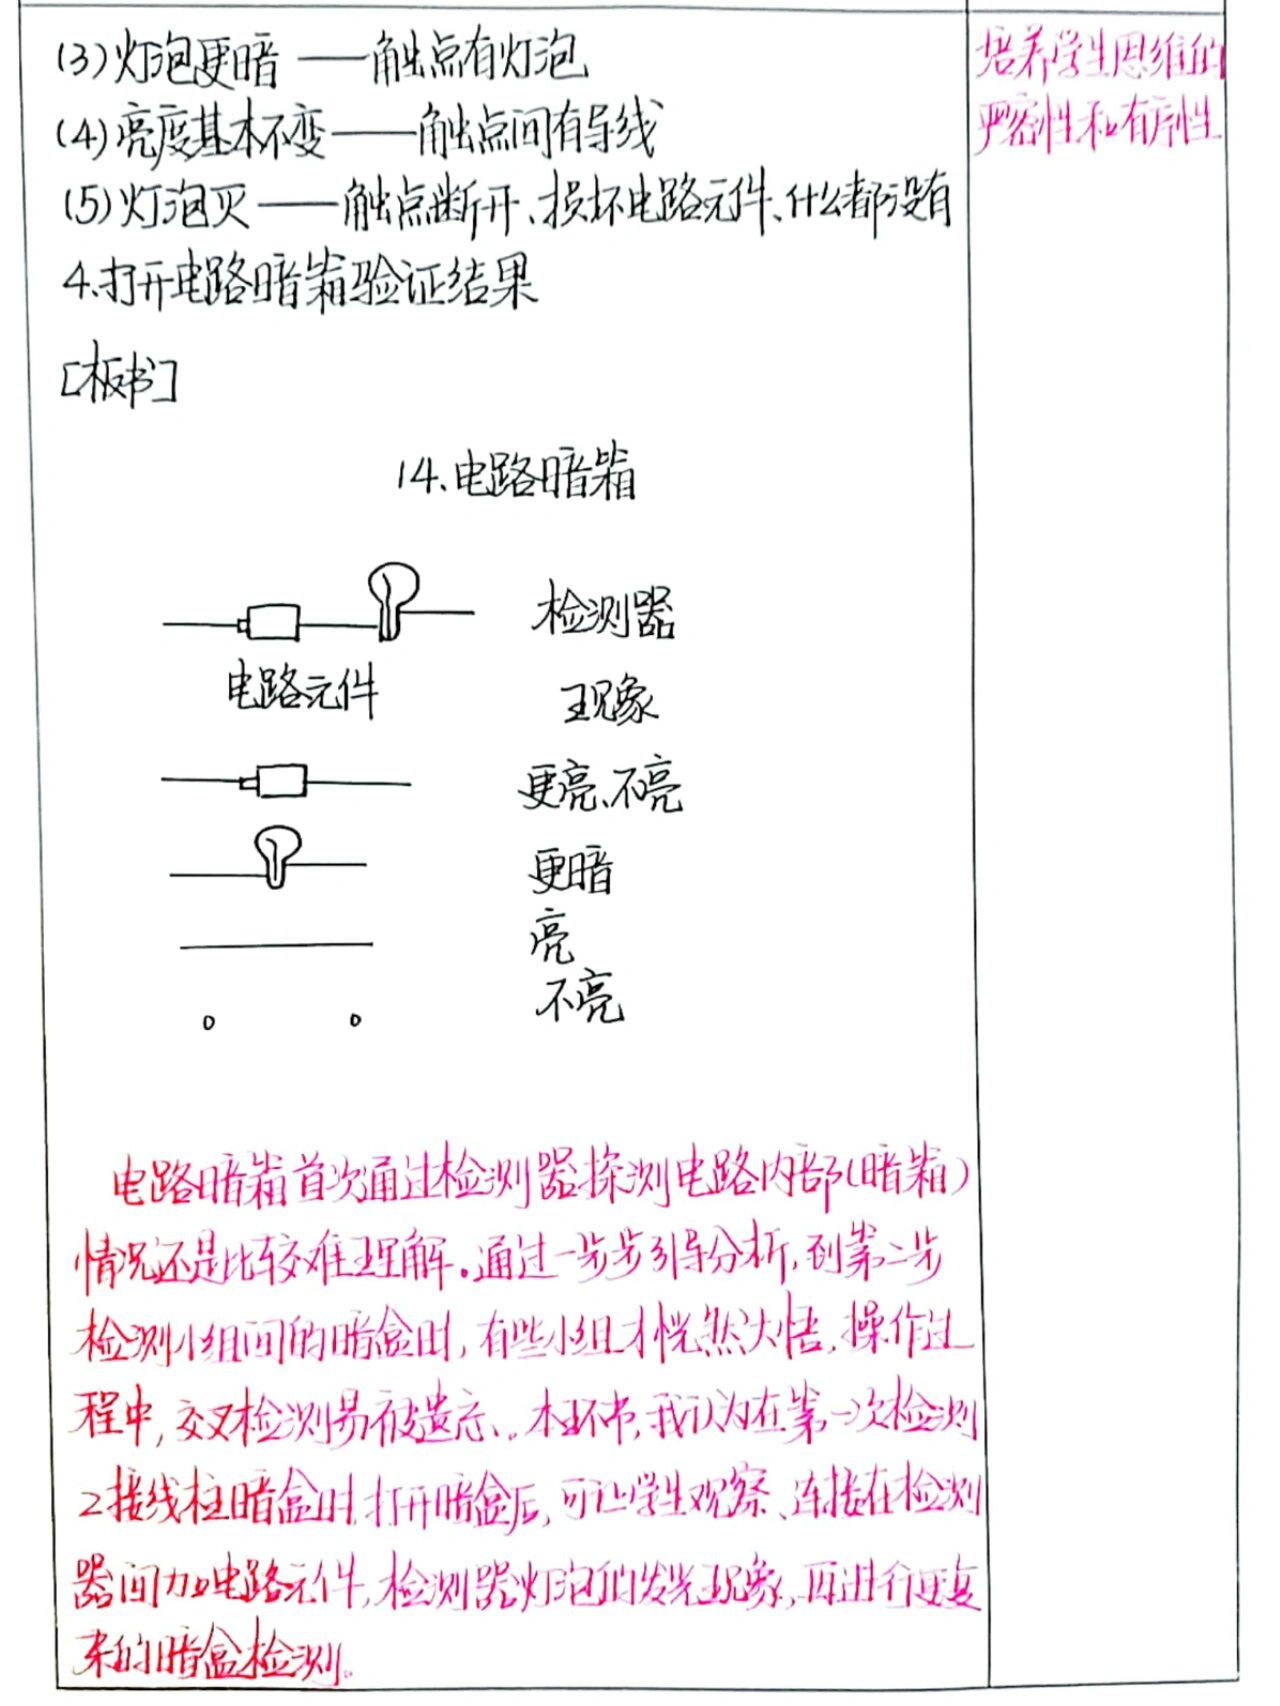 (3)灯泡更暗——触点有灯泡
(4)亮度基本不变——触点间有导线
(5)灯泡灭——触点断开、损坏电路元件、什么都没有
4.打开电路暗箱验证结果
[板书]
14.电路暗箱
检测器
电路元件 现象
更亮、不亮
更暗
亮
不亮
电路暗箱首次通过检测器探测电路内部(暗箱)
情况还是比较难理解。通过一步步引导分析,到第二步
检测小组间的暗盒时,有些小组才恍然大悟,操作过
程中,交叉检测易被遗忘。本环节,我认为在第一次检测
2接线柱暗盒时,打开暗盒后,可让学生观察、连接在检测
器间加电路元件,检测器灯泡的发光现象,再进行更复
杂的暗盒检测。
培养学生思维的
严密性和有序性